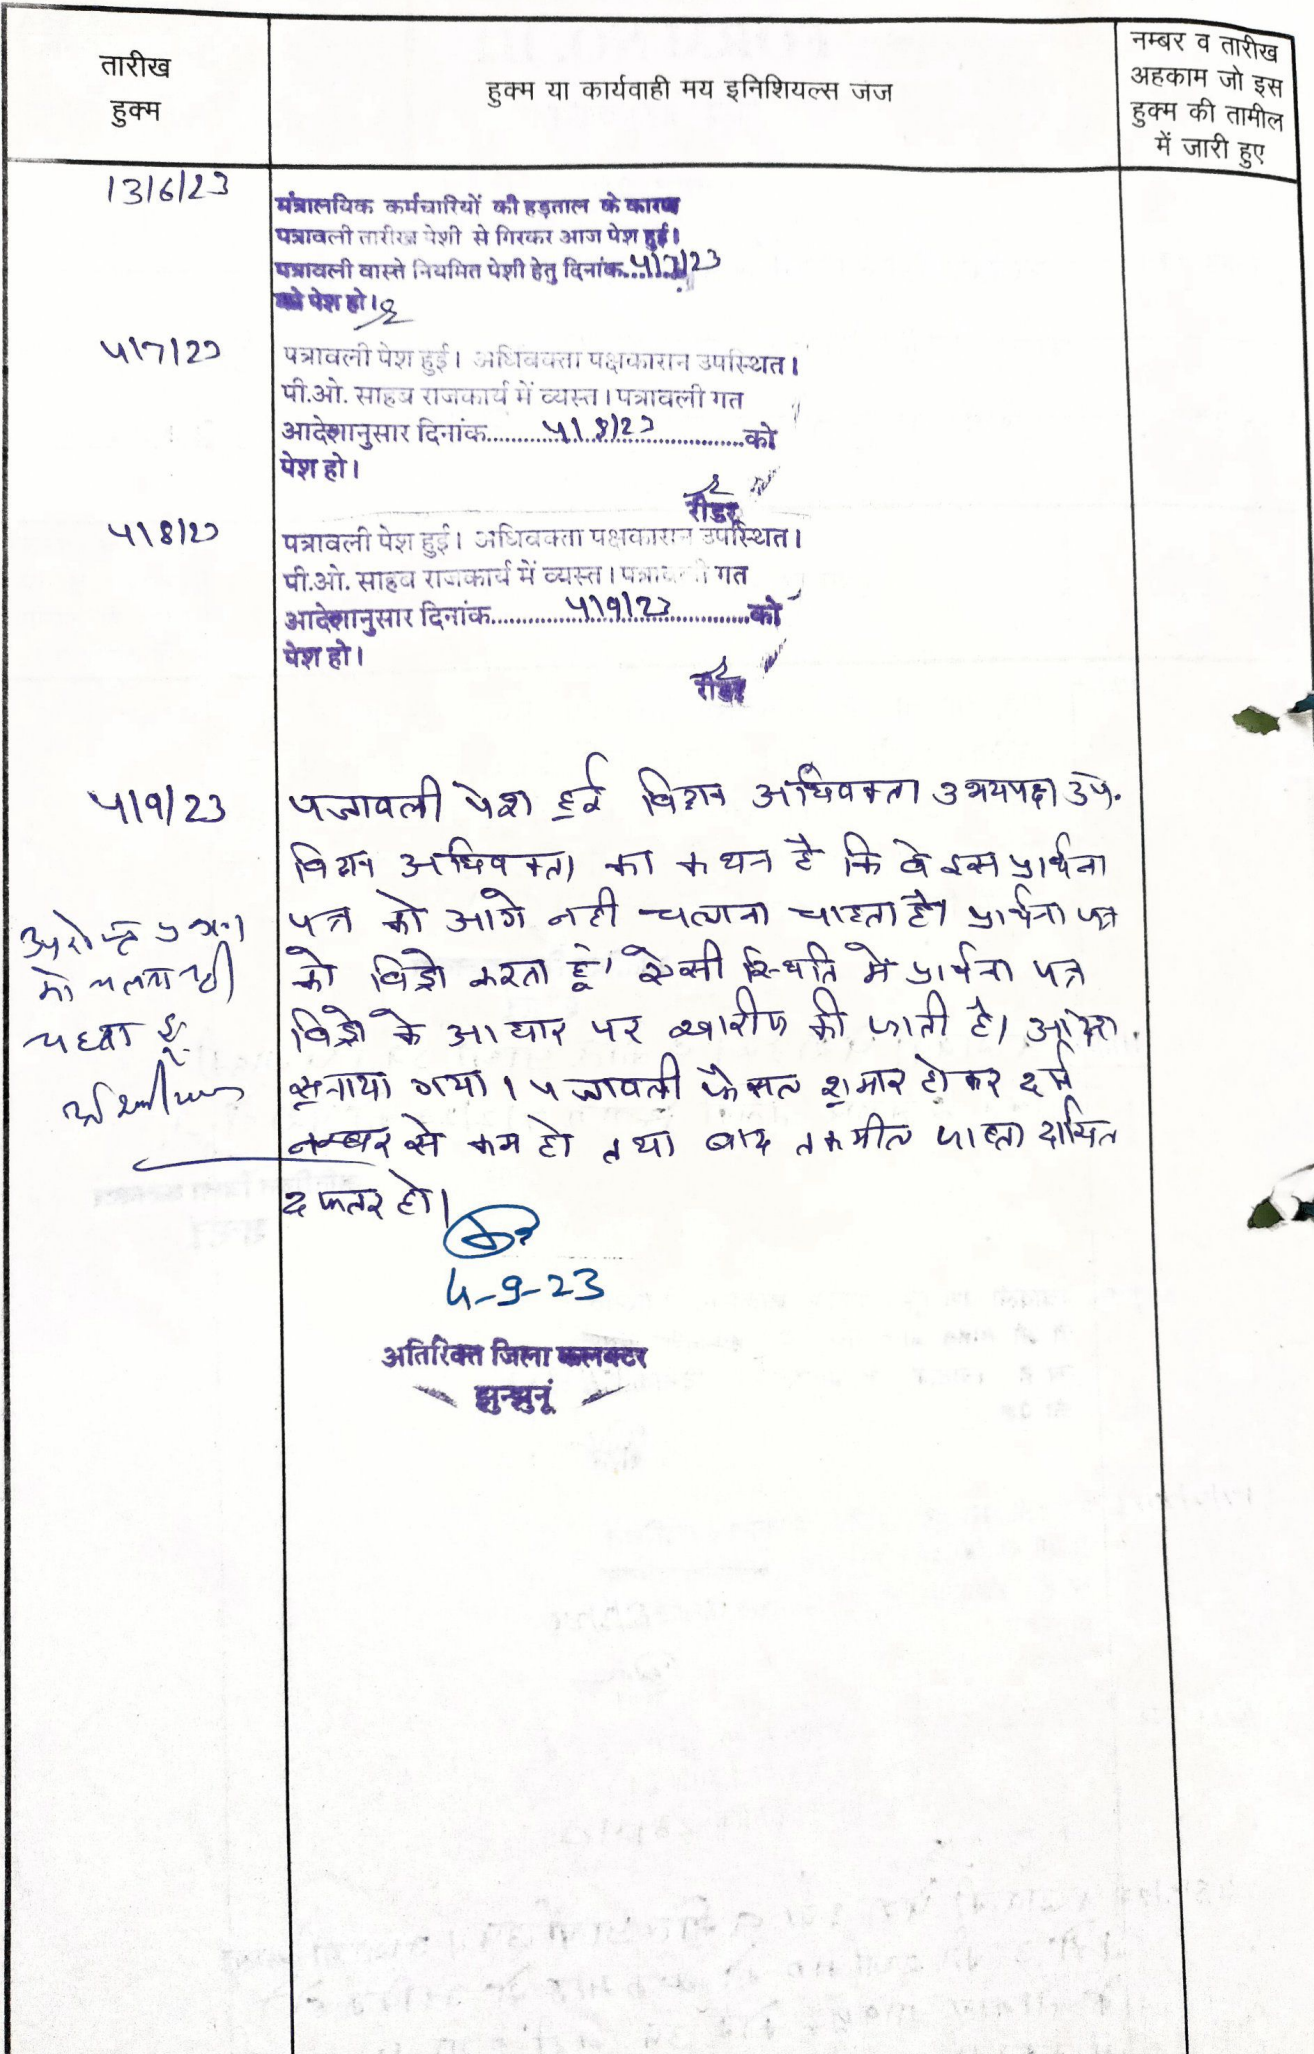 तारीख
हुक्म
हुक्म या कार्यवाही मय इनिशियल्स जज
नम्बर व तारीख
अहकाम जो इस
हुक्म की तामील
में जारी हुए
13/6/23
मंत्रालयिक कर्मचारियों की हड़ताल के कारण
पत्रावली तारीख पेशी से गिरकर आज पेश हुई।
पत्रावली वास्ते नियमित पेशी हेतु दिनांक...4/7/23
को पेश हो।
4/7/23
पत्रावली पेश हुई। अधिवक्ता पक्षकारान उपस्थित।
पी.ओ. साहब राजकार्य में व्यस्त। पत्रावली गत
आदेशानुसार दिनांक......4/8/23......को
पेश हो।
रीडर
4/8/23
पत्रावली पेश हुई। अधिवक्ता पक्षकारान उपस्थित।
पी.ओ. साहब राजकार्य में व्यस्त। पत्रावली गत
आदेशानुसार दिनांक......4/9/23......को
पेश हो।
रीडर
4/9/23
पत्रावली पेश हुई विद्वान अधिवक्ता उभयपक्ष उप.
विद्वान अधिवक्ता का कथन है कि वे इस प्रार्थना
पत्र को आगे नही चलाना चाहता है। प्रार्थना पत्र
को विड्रो करता हूं। ऐसी स्थिति में प्रार्थना पत्र
विड्रो के आधार पर खारीज की जाती है। आदेश
सुनाया गया। पत्रावली फैसल शुमार होकर दर्ज
नम्बर से कम हो तथा बाद तकमील दाखिल
दफ्तर हो।
4-9-23
अतिरिक्त जिला कलक्टर
झुन्झुनूं